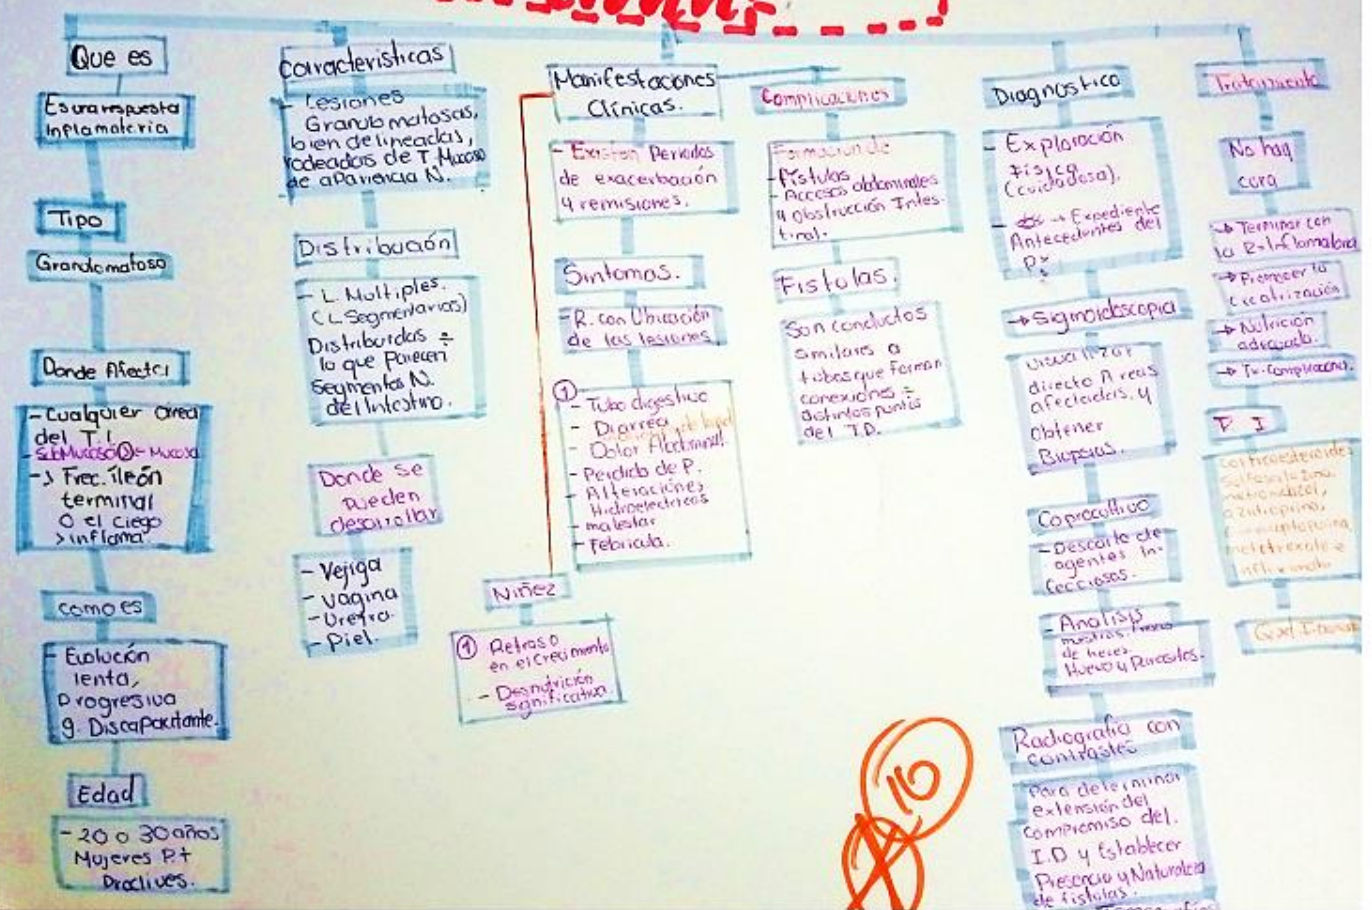 Que es
Es una respuesta
Inflamatoria
Tipo
Granulomatoso
Donde Afecta
- Cualquier área
del T.I
- SubMucosa ① - Mucosa
-> Frec. íleon
terminal
O el ciego
> inflama
como es
- Evolución
lenta,
Progresiva
y. Discapacitante.
Edad
- 20 o 30 años
Mujeres P.+
Proclives.
Caracteristicas
- Lesiones
Granulomatosas,
bien delineadas,
rodeadas de T. Mucoso
de apariencia N.
Distribución
- L. Multiples.
(L. Segmentarias)
Distribuidas ÷
lo que Parecen
Segmentos N.
del Intestino.
Donde se
pueden
desarrollar
- Vejiga
- vagina
- Uretra.
- Piel.
Manifestaciones
Clínicas.
- Existen Periodos
de exacerbación
y remisiones.
Sintomas.
- R. con Ubicación
de las lesiones
①
- Tubo digestivo
- Diarrea
- Dolor Abdominal
- Perdida de P.
- Alteraciones
Hidroelectricos
- malestar
- Febricula.
Niñez
① Retraso
en el crecimento
- Desnutrición
significativa.
Complicaciones
Formacion de
- Fistulas
- Accesos abdominales
y Obstrucción Intes-
tinal.
Fistulas.
Son conductos
similares a
tubos que forman
conexiones ÷
distintos puntos
del T.D.
Diagnostico
- Exploración
Fisica
(cuidadosa).
- Expediente
Antecedentes del
Px
-> Sigmoidoscopia
visualizar
directo Areas
afectadas, y
Obtener
Biopsias.
Coprocultivo
- Descarte de
agentes In-
fecciosos.
- Analisis
de heces.
Huevo y Parasitos.
Radiografia con
contrastes
Para determinar
extensión del
compromiso del.
I.D y Establecer
Presencia y Naturaleza
de fistulas.
Tratamiento
No hay
cura
-> Terminar con
la R. Inflamatoria
-> Promover la
Cicatrización
-> Nutrición
adecuada.
-> Tx. Complicacion.
Corticoesteroides
Sulfasalazina,
metronidazol,
azatioprina,
metotrexate e
infliximab
10